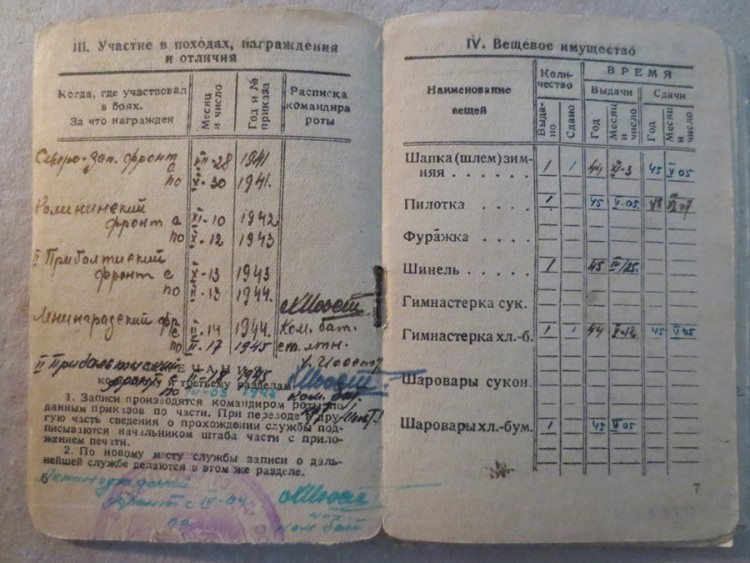 III. Участие в походах, награждения
и отличия
Когда, где участвовал
в боях.
За что награжден
Месяц
и число
Год и №
приказа
Расписка
командира
роты
Северо-Зап. фронт
с VII-28 1941
по XI-30 1941.
Калининский
фронт с XI-10 1942
по XI-12 1943
II Прибалтийский
фронт с -13 1943
по -13 1944.
Ленинградский фр.
с -14 1944. Ком. бат.
по II-17 1945 ст. лтн.
II Прибалтийский
фронт с 1945
к третьему разделам
по 1945
1. Записи производятся командиром роты
данным приказов по части. При переводе в дру-
гую часть сведения о прохождении службы под-
писываются начальником штаба части с прило-
жением печати.
2. По новому месту службы записи о даль-
нейшей службе делаются в этом же разделе.
Ленинградский
фронт с IV-04
по
ком. бат
IV. Вещевое имущество
Наименование
вещей
Коли-
чество
ВРЕМЯ
Выдачи
Сдачи
Выда-
но
Сдано
Год
Месяц
и
число
Год
Месяц
и
число
Шапка (шлем) зим-
няя . . . . . . 1 1 44 XI-3 45 V-05
Пилотка . . . . 1 45 V-05 48
Фуражка . . . .
Шинель . . . . 1 45 IV/25
Гимнастерка сук.
Гимнастерка хл.-б. 1 1 44 X-12 45 V-05
Шаровары сукон.
Шаровары хл.-бум. 1 45 V-05
7